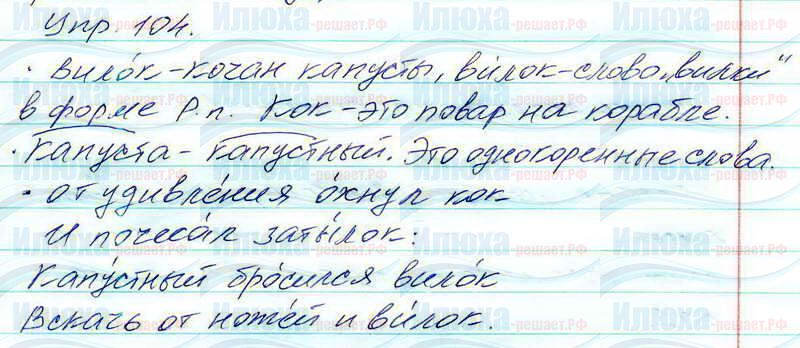 Упр. 104.
· Вило́к – кочан капусты, ви́лок – слово „вилки“
в форме Р.п. Кок – это повар на корабле.
· Капуста – капустный. Это однокоренные слова.
· От удивле́ния о́хнул кок
И почеса́л заты́лок:
Капу́стный бро́сился вило́к
Вскачь от ноже́й и ви́лок.